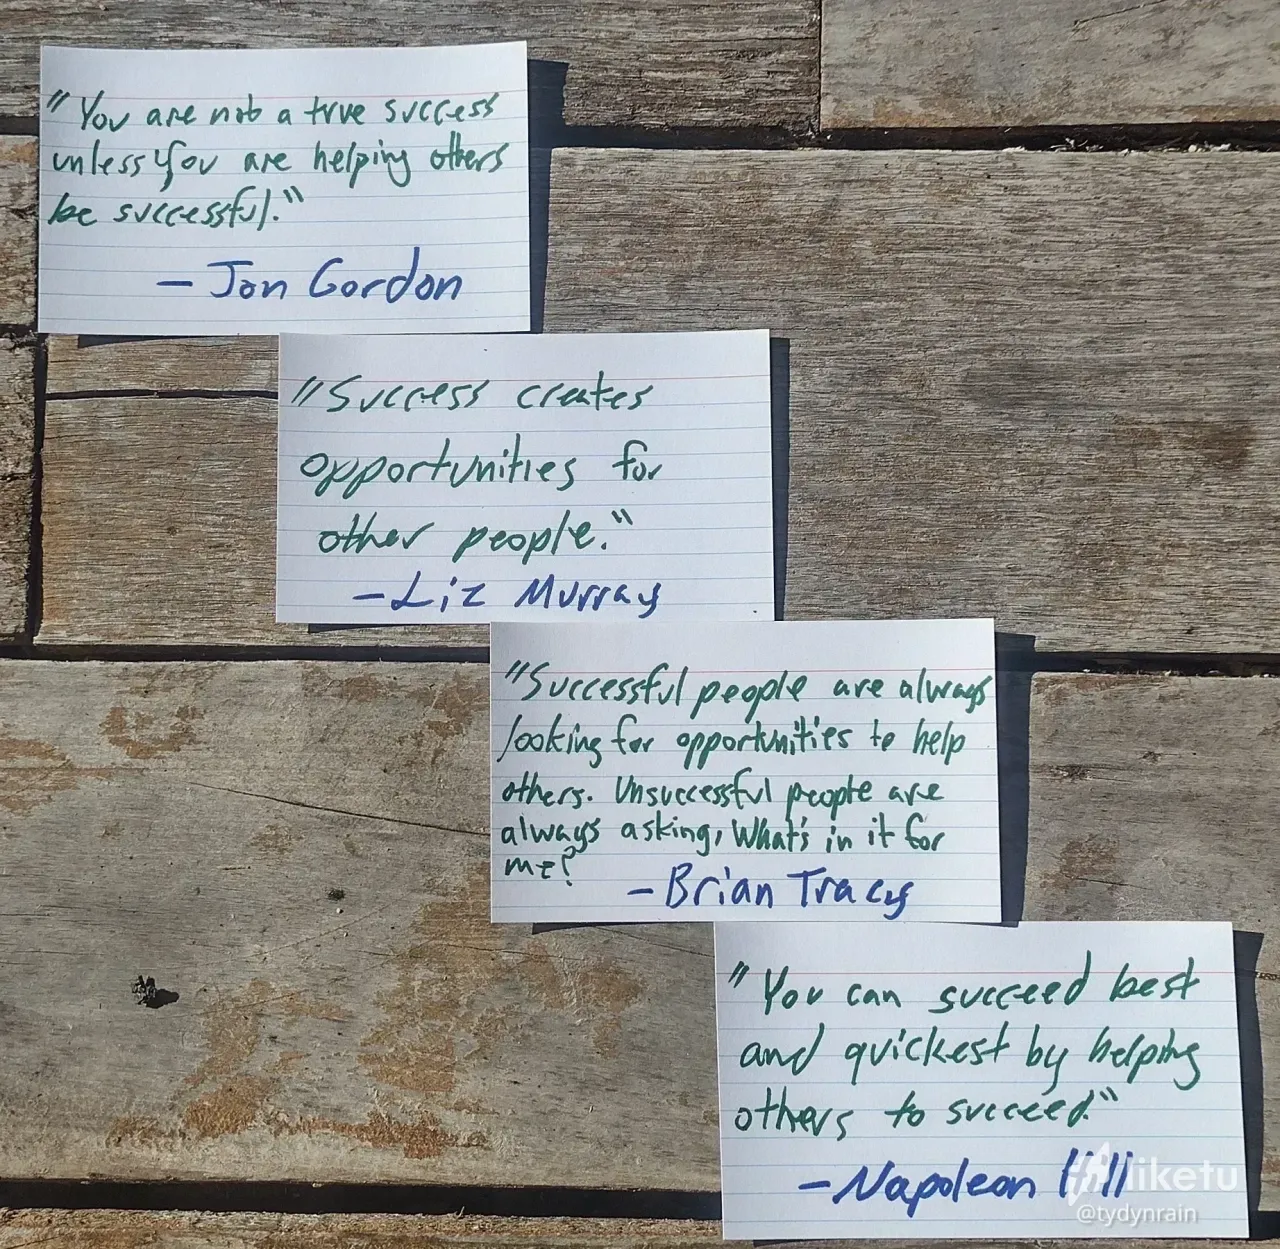 "You are not a true success
unless you are helping others
be successful."
- Jon Gordon
"Success creates
opportunities for
other people."
- Liz Murray
"Successful people are always
looking for opportunities to help
others. Unsuccessful people are
always asking, What's in it for
me?
- Brian Tracy
"You can succeed best
and quickest by helping
others to succeed."
- Napoleon Hill
liketu
@tydynrain